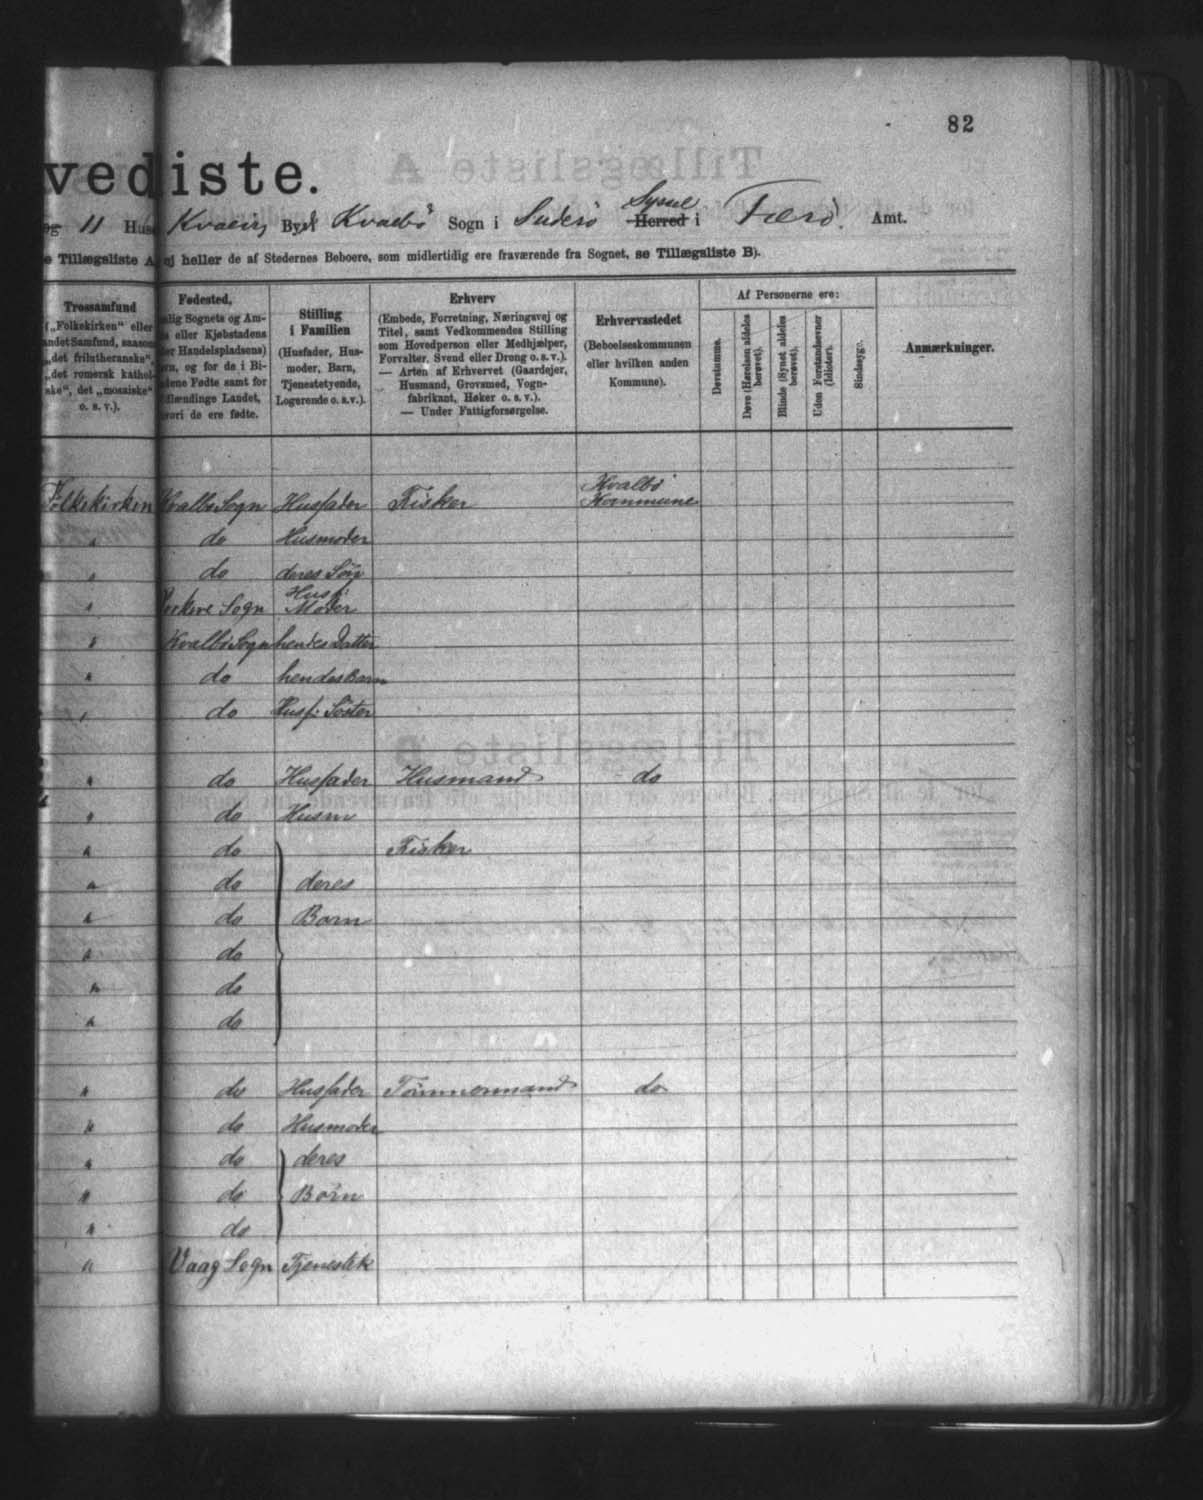 82
vediste.
og 11 Hus Kvalvig By Kvalbø Sogn i Suderø Syssel Herred i Færø Amt.
e Tillægsliste A ej heller de af Stedernes Beboere, som midlertidig ere fraværende fra Sognet, se Tillægsliste B).
Trossamfund
(„Folkekirken“ eller
andet Samfund, saasom
„det frilutheranske“,
„det romersk kathol-
ske“, det „mosaiske“
o. s. v.).
Fødested,
lig Sognets og Am-
s eller Kjøbstadens
er Handelspladsens)
vn, og for de i Bi-
dene Fødte samt for
dlændinge Landet,
vori de ere fødte.
Stilling
i Familien
(Husfader, Hus-
moder, Barn,
Tjenestetyende,
Logerende o. s. v.).
Erhverv
(Embede, Forretning, Næringsvej og
Titel, samt Vedkommendes Stilling
som Hovedperson eller Medhjælper,
Forvalter, Svend eller Dreng o. s. v.).
— Arten af Erhvervet (Gaardejer,
Husmand, Grovsmed, Vogn-
fabrikant, Høker o. s. v.).
— Under Fattigforsørgelse.
Erhvervsstedet
(Beboelseskommunen
eller hvilken anden
Kommune).
Af Personerne ere:
Døvstumme.
Døve (Hørelsen aldeles
berøvet).
Blinde (Synet aldeles
berøvet).
Uden Forstandsevner
(Idioter).
Sindssyge.
Anmærkninger.
Folkekirken Kvalbø Sogn Husfader Fisker Kvalbø Kommune
" do Husmoder
" do deres Søn
" Sogn Husf: Moder
" Kvalbø Sogn hendes Datter
" do hendes Barn
" do Husf: Søster
" do Husfader Husmand do
" do Husm
" do Fisker
" do deres
" do Børn
" do
" do
" do
" do Husfader Tømmermand do
" do Husmoder
" do deres
" do Børn
" do
" Vaag Sogn Tjenestek